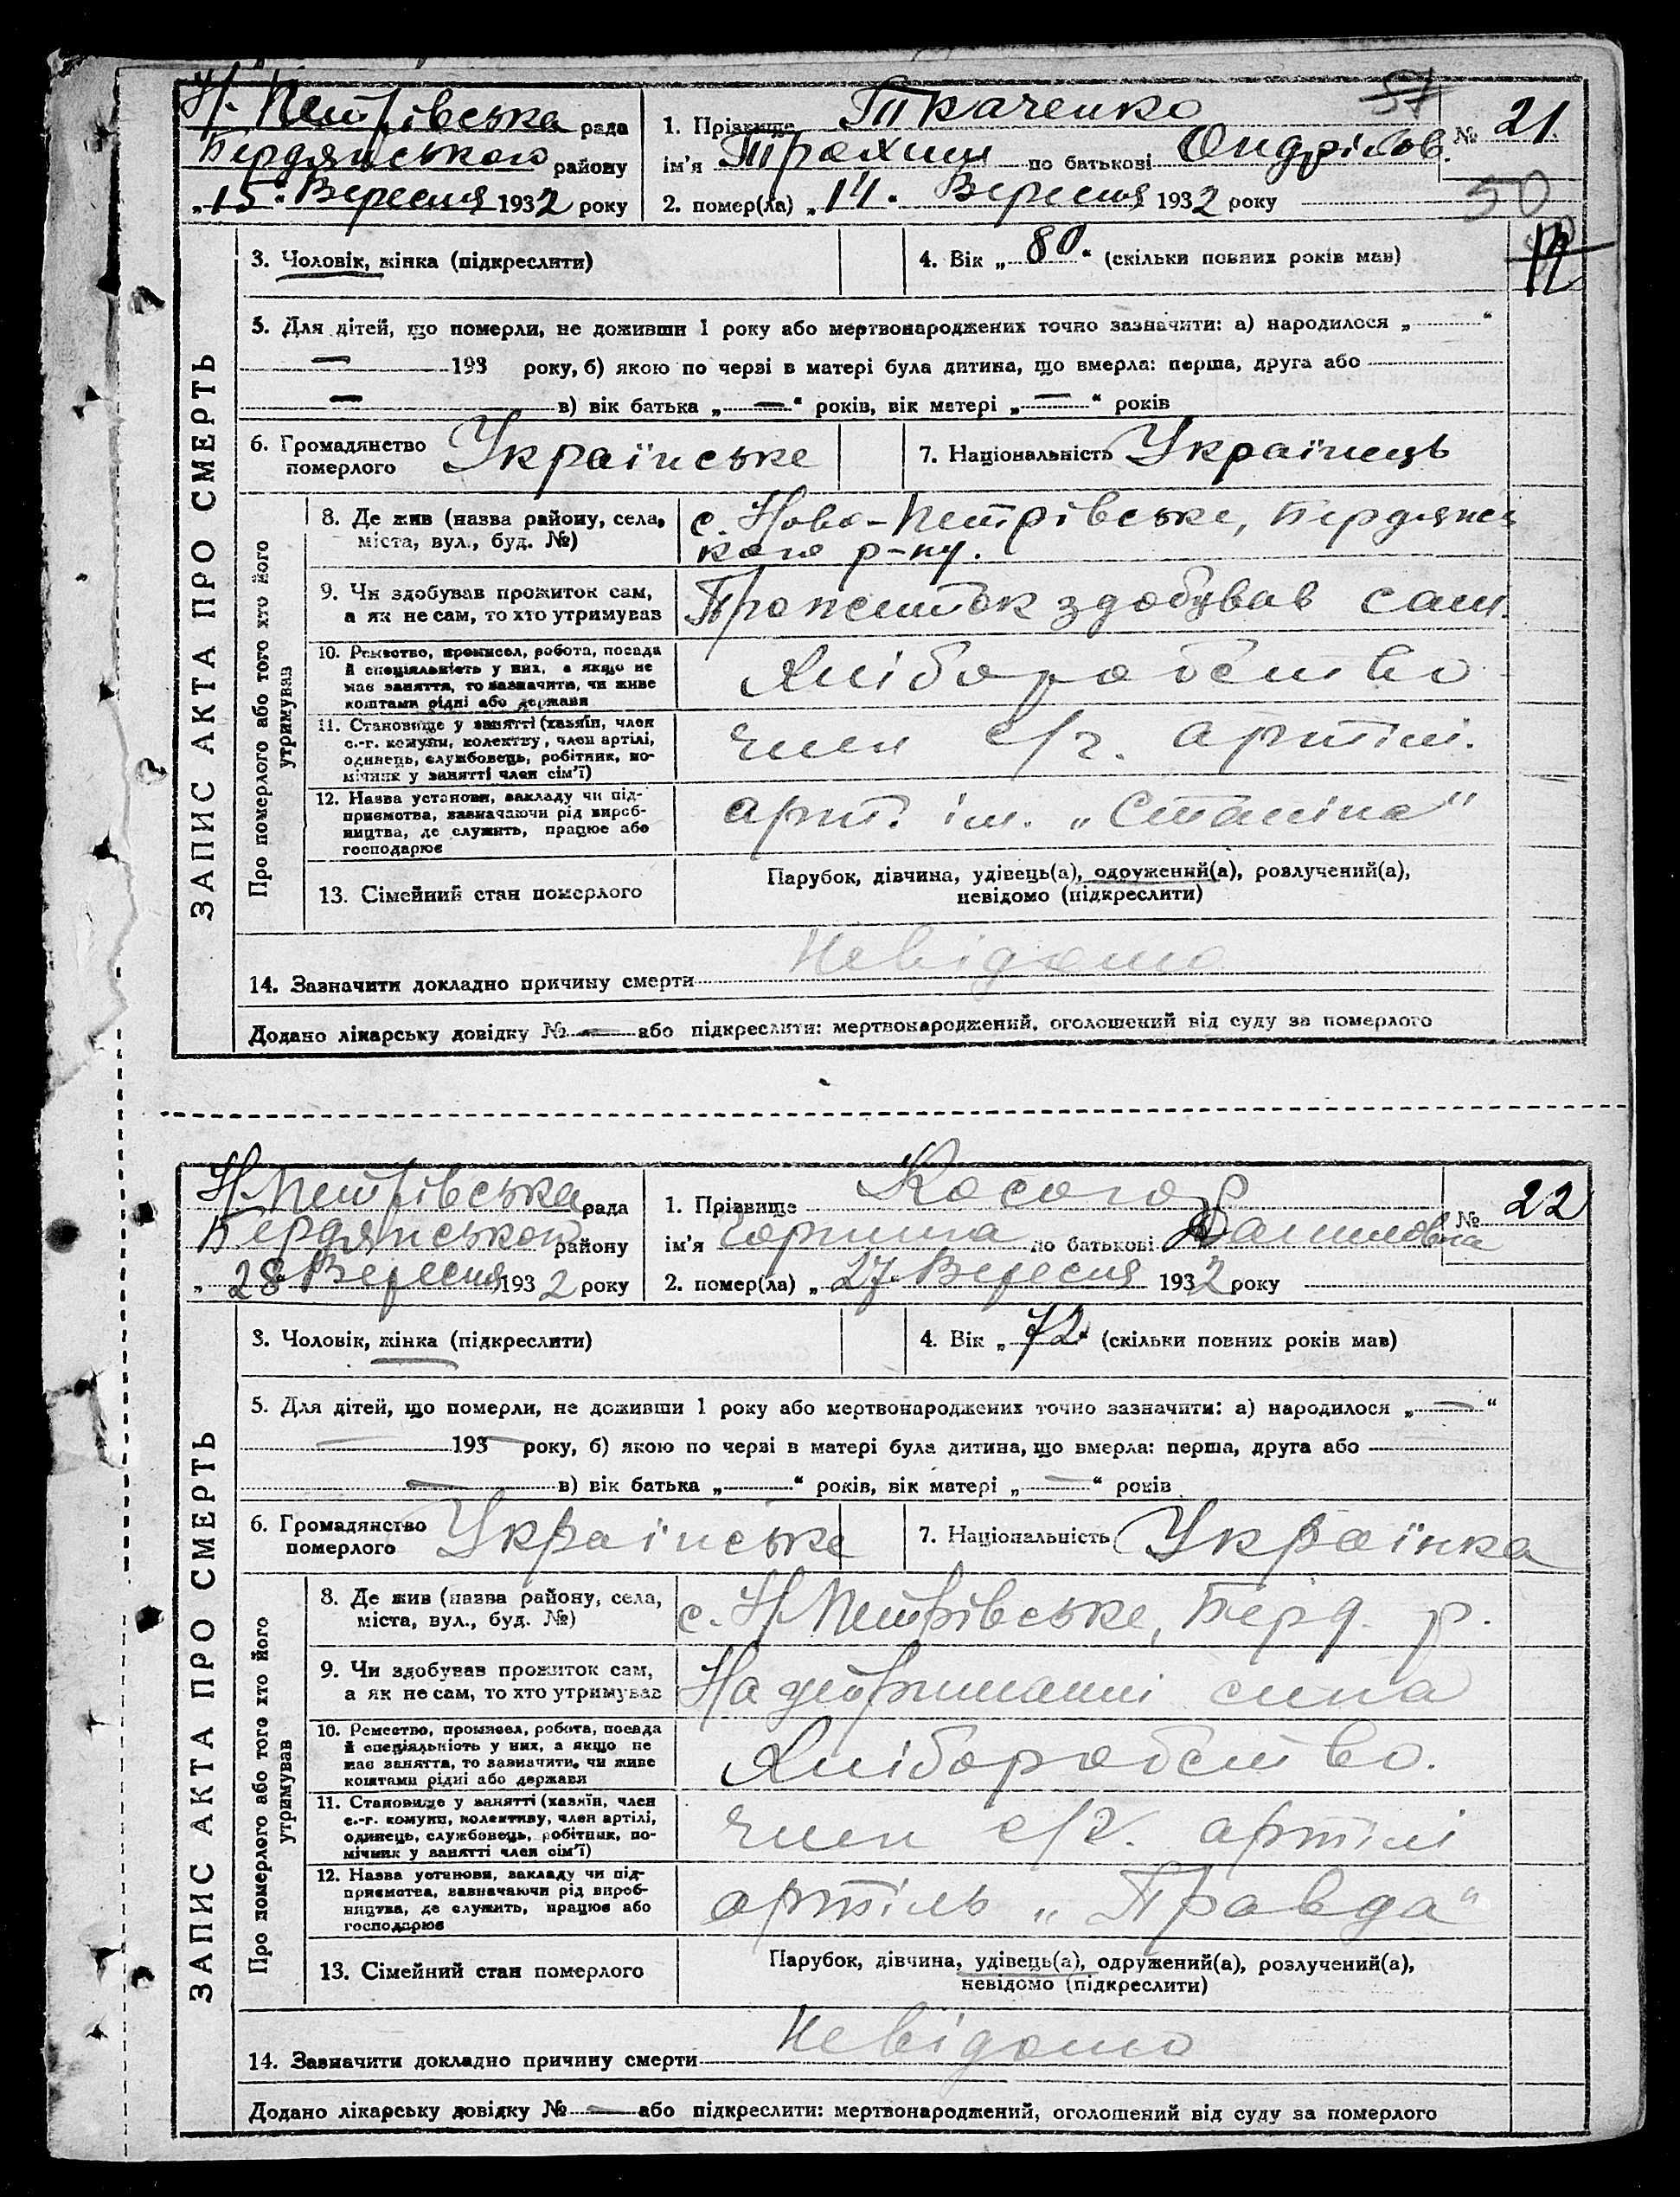 Н. Петрівська рада
Бердянського району
„15“ Вересня 1932 року
1. Прізвище Ткаченко
ім'я Трохим по батькові Ондрійов.
2. помер(ла) „14“ Вересня 1932 року
№ 21.
50
ЗАПИС АКТА ПРО СМЕРТЬ
3. Чоловік, жінка (підкреслити)
4. Вік „80“ (скільки повних років мав)
5. Для дітей, що померли, не доживши 1 року або мертвонароджених точно зазначити: а) народилося „ “
— 193 року, б) якою по черзі в матері була дитина, що вмерла: перша, друга або
— в) вік батька „—“ років, вік матері „—“ років
6. Громадянство померлого Українське
7. Національність Українець
Про померлого або того хто його утримував
8. Де жив (назва району, села,
міста, вул., буд. №)
с. Ново-Петрівське, Бердянсь
кого р-ну.
9. Чи здобував прожиток сам,
а як не сам, то хто утримував
Прожиток здобував сам.
10. Ремество, промисел, робота, посада
й спеціяльність у них, а якщо не
має заняття, то зазначити, чи живе
коштами рідні або держави
Хліборобство
11. Становище у занятті (хазяїн, член
с.-г. комуни, колективу, член артілі,
одинець, службовець, робітник, по-
мічник у занятті член сім'ї)
член с/г. артілі.
12. Назва установи, закладу чи під-
приємства, зазначаючи рід вироб-
ництва, де служить, працює або
господарює
арт. ім. „Сталіна“
13. Сімейний стан померлого
Парубок, дівчина, удівець(а), одружений(а), розлучений(а),
невідомо (підкреслити)
14. Зазначити докладно причину смерти Невідомо
Додано лікарську довідку № — або підкреслити: мертвонароджений, оголошений від суду за померлого
Н.Петрівська рада
Бердянського району
„28“ Вересня 1932 року
1. Прізвище Косогор
ім'я по батькові Даниловна
2. помер(ла) „27“ Вересня 1932 року
№ 22
ЗАПИС АКТА ПРО СМЕРТЬ
3. Чоловік, жінка (підкреслити)
4. Вік „72“ (скільки повних років мав)
5. Для дітей, що померли, не доживши 1 року або мертвонароджених точно зазначити: а) народилося „—“
— 193— року, б) якою по черзі в матері була дитина, що вмерла: перша, друга або
— в) вік батька „ “ років, вік матері „—“ років
6. Громадянство померлого Українське
7. Національність Українка
Про померлого або того хто його утримував
8. Де жив (назва району, села,
міста, вул., буд. №)
с. Н.Петрівське, Берд. р.
9. Чи здобував прожиток сам,
а як не сам, то хто утримував
На утриманні сина
10. Ремество, промисел, робота, посада
й спеціяльність у них, а якщо не
має заняття, то зазначити, чи живе
коштами рідні або держави
Хліборобство.
11. Становище у занятті (хазяїн, член
с.-г. комуни, колективу, член артілі,
одинець, службовець, робітник, по-
мічник у занятті член сім'ї)
член с/г. артілі
12. Назва установи, закладу чи під-
приємства, зазначаючи рід вироб-
ництва, де служить, працює або
господарює
артіль „Правда“
13. Сімейний стан померлого
Парубок, дівчина, удівець(а), одружений(а), розлучений(а),
невідомо (підкреслити)
14. Зазначити докладно причину смерти Невідомо
Додано лікарську довідку № — або підкреслити: мертвонароджений, оголошений від суду за померлого